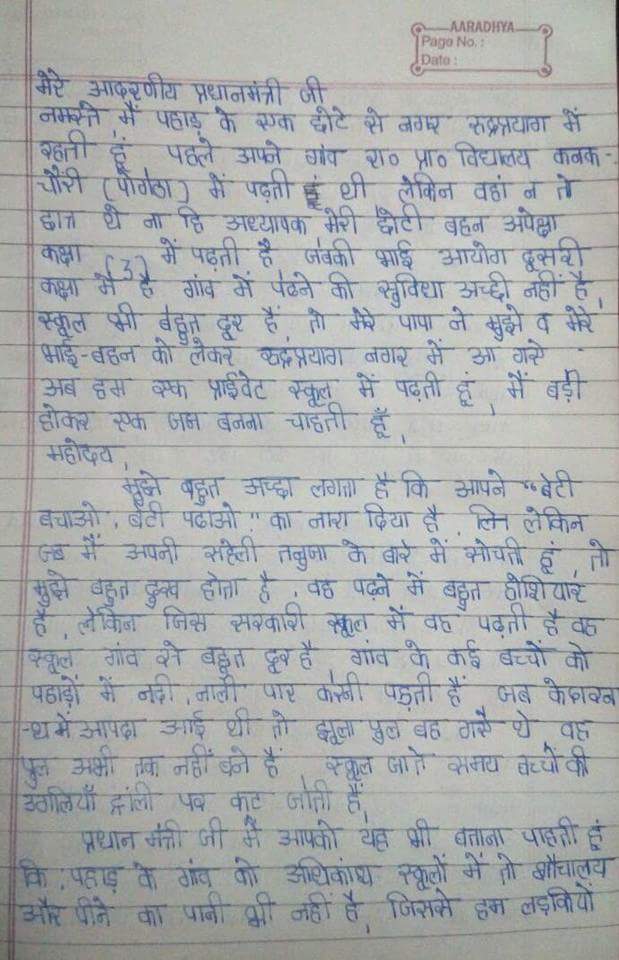 AARADHYA
Page No. :
Date :
मेरे आदरणीय प्रधानमंत्री जी
नमस्ते मैं पहाड़ के एक छोटे से नगर रुद्रप्रयाग में
रहती हूं पहले अपने गांव रा० प्रा० विद्यालय कनक-
चौरी (पोगठा) में पढ़ती थी लेकिन वहां न तो
छात्र थे ना हि अध्यापक मेरी छोटी बहन अपेक्षा
कक्षा (3) में पढ़ती है जबकी भाई आयोग दूसरी
कक्षा में है गांव में पढने की सुविधा अच्छी नहीं है,
स्कूल भी बहुत दूर है तो मेरे पापा ने मुझे व मेरे
भाई-बहन को लेकर रुद्रप्रयाग नगर में आ गये
अब हम एक प्राईवेट स्कूल में पढ़ती हूं, मैं बड़ी
होकर एक जज बनना चाहती हूँ,
महोदय,
मुझे बहुत अच्छा लगता है कि आपने "बेटी
बचाओ, बेटी पढाओ" का नारा दिया है, लेकिन
जब मैं अपनी सहेली तनुजा के बारे में सोचती हूं, तो
मुझे बहुत दुख होता है, वह पढ़ने में बहुत होशियार
है, लेकिन जिस सरकारी स्कूल में वह पढ़ती है वह
स्कूल गांव से बहुत दूर है गांव के कई बच्चों को
पहाड़ों में नदी, नाली पार करनी पड़ती हैं जब केदारना
-थ में आपदा आई थी तो झूला पुल बह गये थे, वह
पुल अभी तक नहीं बने हैं स्कूल जाते समय बच्चों की
उगलियाँ ट्राली पर कट जाती हैं,
प्रधान मंत्री जी मैं आपको यह भी बताना चाहती हूं
कि, पहाड़ के गांव को अधिकांश स्कूलों में तो शौचालय
और पीने का पानी भी नहीं है, जिससे हम लड़कियों